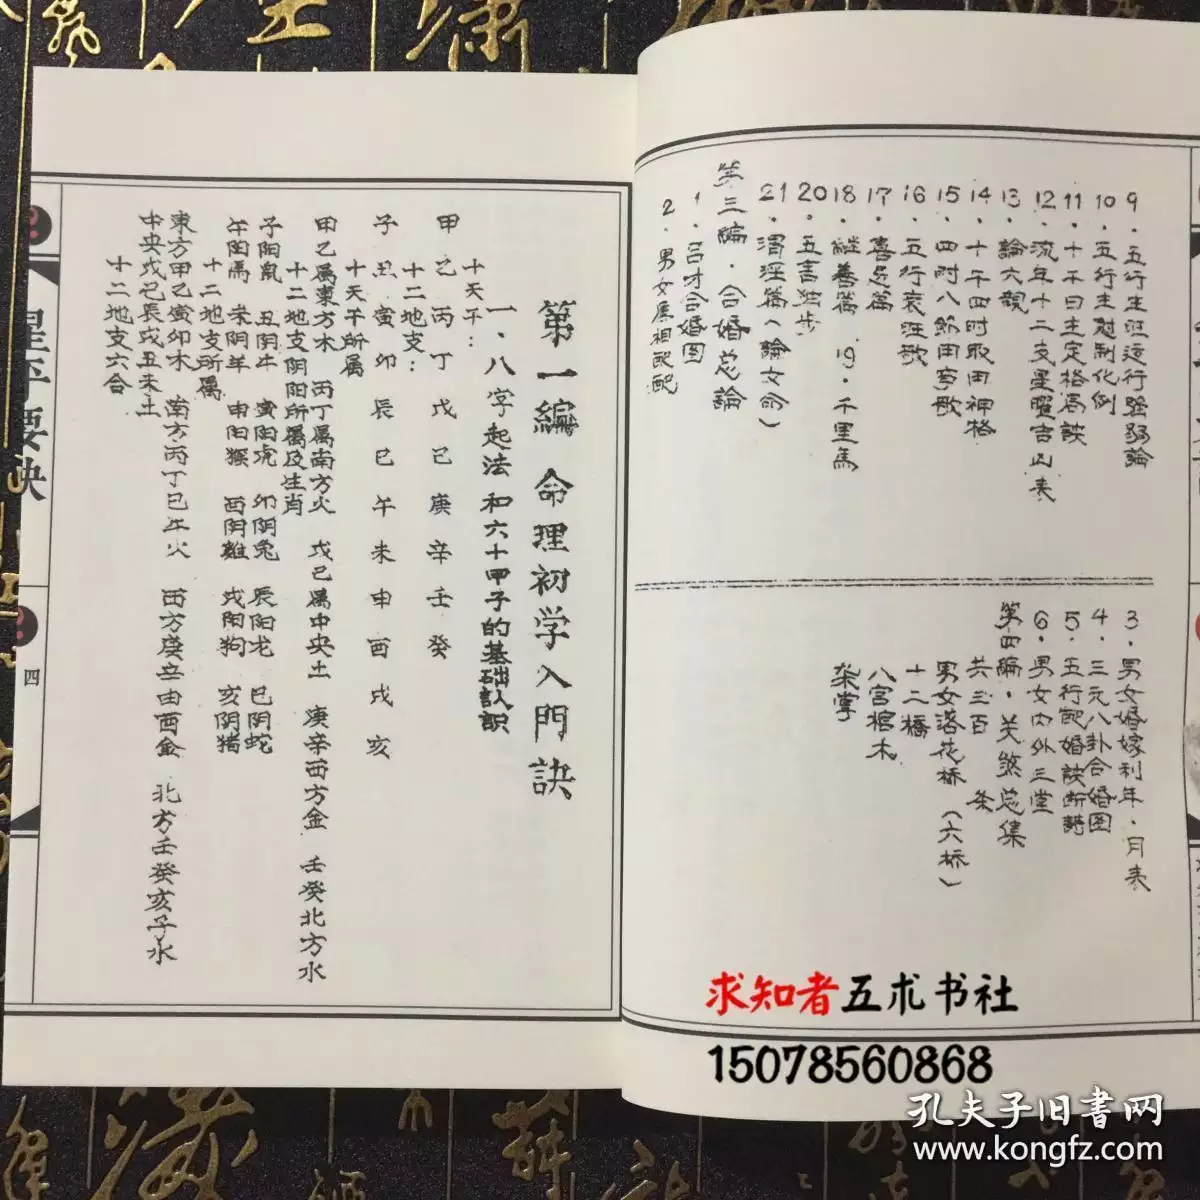 9．五行生旺运行强弱論
10．五行生尅制化例
11．十干日主定格局訣
12．流年十二支星曜吉凶表
13．論六親
14．十干四时取用神格
15．四时八節用事歌
16．五行衰旺歌
17．喜忌篇
18．继善篇　19．千里馬
20．五言独步
21．渭泾篇（論女命）
第三編．合婚总論
1．吕才合婚图
2．男女属相配
3．男女婚嫁利年．月表
4．三元八卦合婚图
5．五行配婚訣断語
6．男女内外三堂
第四編．关煞总集
共三百　条
男女落花桥（六桥）
十二橋
八宫棺木
第一編　命理初学入門訣
一．八字起法和六十甲子的基础认识
十天干：
甲乙丙丁戊己庚辛壬癸
十二地支：
子丑寅卯辰巳午未申酉戌亥
十天干所属
甲乙属東方木　丙丁属南方火　戊己属中央土　庚辛西方金　壬癸北方水
十二地支阴阳所属及生肖
子阳鼠　丑阴牛　寅阳虎　卯阴兔　辰阳龙　巳阴蛇
午阳馬　未阴羊　申阳猴　酉阴雞　戌阳狗　亥阴猪
十二地支所属
東方甲乙寅卯木　南方丙丁巳午火　西方庚辛申酉金　北方壬癸亥子水
中央戊己辰戌丑未土
十二地支六合
星平要诀
四
求知者五术书社
15078560868
孔夫子旧書网
www.kongfz.com